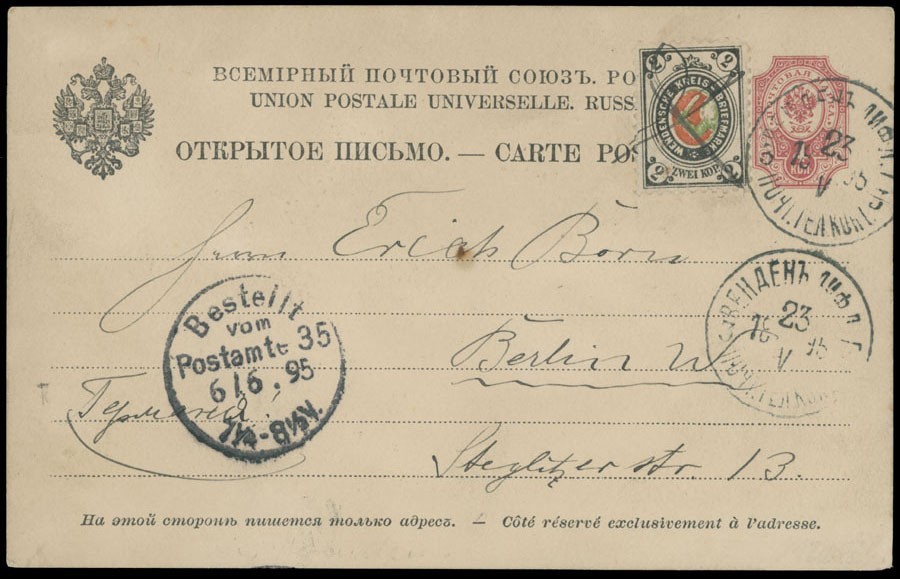 ВСЕМІРНЫЙ ПОЧТОВЫЙ СОЮЗЪ. РО
UNION POSTALE UNIVERSELLE. RUSS
ОТКРЫТОЕ ПИСЬМО. — CARTE PO
2 2
WENDENSCHE KREIS-BRIEFMARKE
ZWEI KOP.
2 2
23
V
Herrn Erich Born
ВЕНДЕНЪ ЛИФЛ. Г.
23
V
Bestellt
vom
Postamte 35
6/6.95
7¼-8½V.
Berlin W
Германія
Steglitzer str. 13.
На этой сторонѣ пишется только адресъ. — Côté réservé exclusivement à l'adresse.